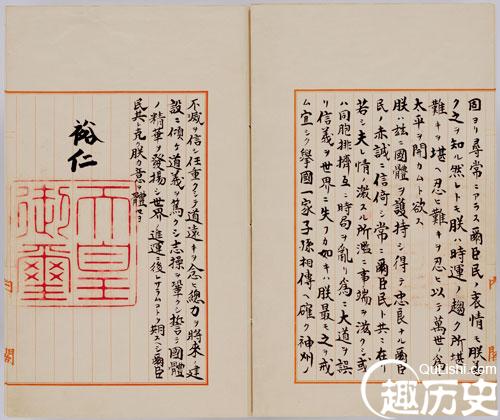 固ヨリ尋常ニアラス爾臣民ノ衷情モ朕善
ク之ヲ知ル然レトモ朕ハ時運ノ趨ク所堪ヘ
難キヲ堪ヘ忍ヒ難キヲ忍ヒ以テ萬世ノ爲ニ
太平ヲ開カムト欲ス
朕ハ茲ニ國體ヲ護持シ得テ忠良ナル爾臣
民ノ赤誠ニ信倚シ常ニ爾臣民ト共ニ在リ
若シ夫レ情ノ激スル所濫ニ事端ヲ滋クシ或
ハ同胞排擠互ニ時局ヲ亂リ爲ニ大道ヲ誤
リ信義ヲ世界ニ失フカ如キハ朕最モ之ヲ戒
ム宜シク擧國一家子孫相傳ヘ確ク神州ノ
不滅ヲ信シ任重クシテ道遠キヲ念ヒ總力ヲ將來ノ建
設ニ傾ケ道義ヲ篤クシ志操ヲ鞏クシ誓テ國體
ノ精華ヲ發揚シ世界ノ進運ニ後レサラムコトヲ期スヘシ爾臣
民其レ克ク朕カ意ヲ體セヨ
裕仁
天皇
御璽
閣
QuLishi.com
趣历史